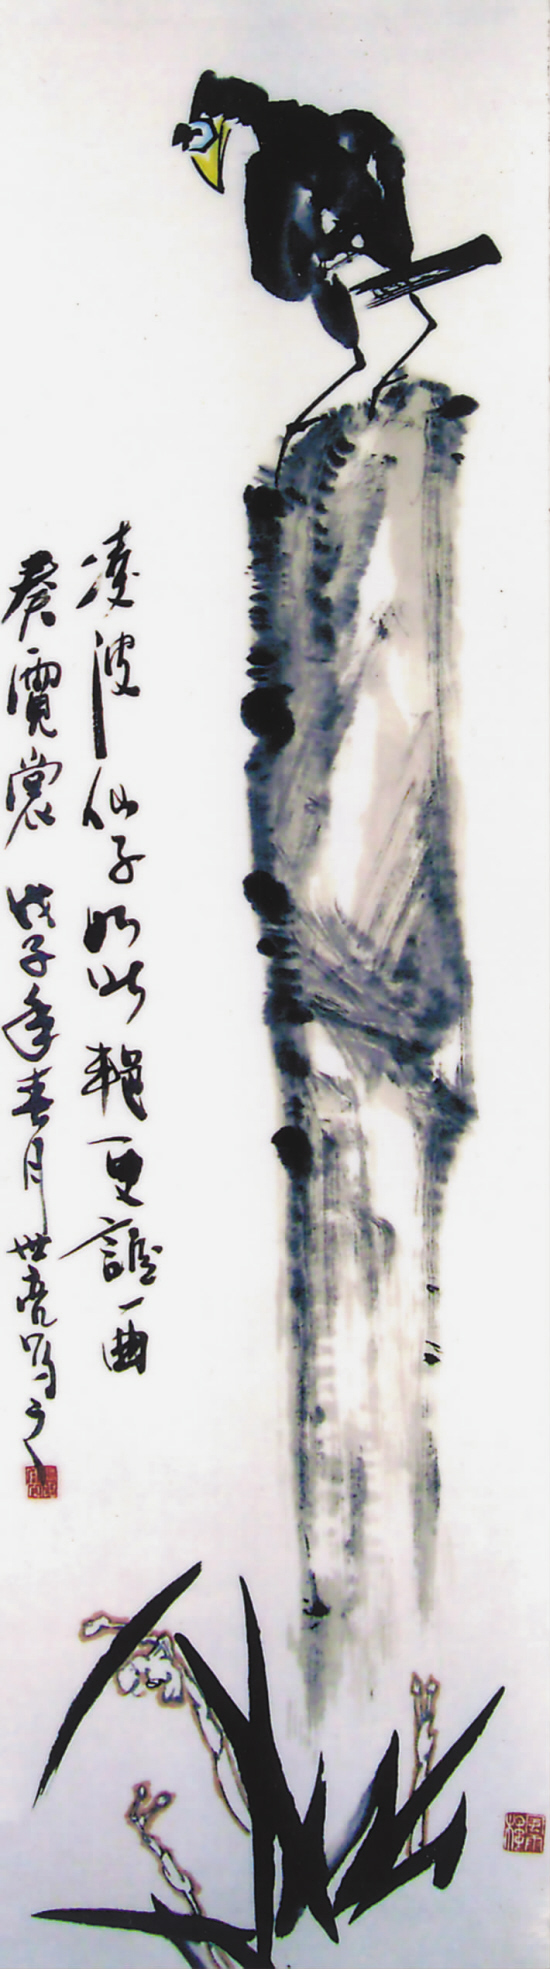 凌波仙子如此艳更谱一曲
奏霓裳 戊子年春月世亮写之